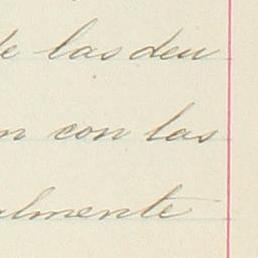 de las deu
n con las
almente